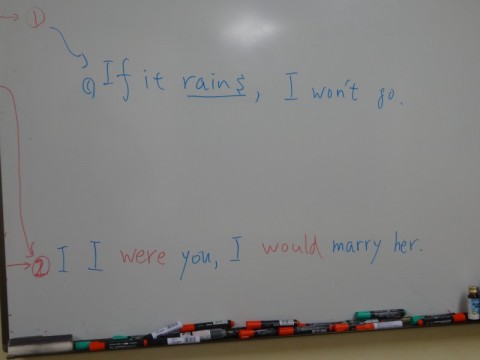 ①
If it rains, I won't go.
② I I were you, I would marry her.